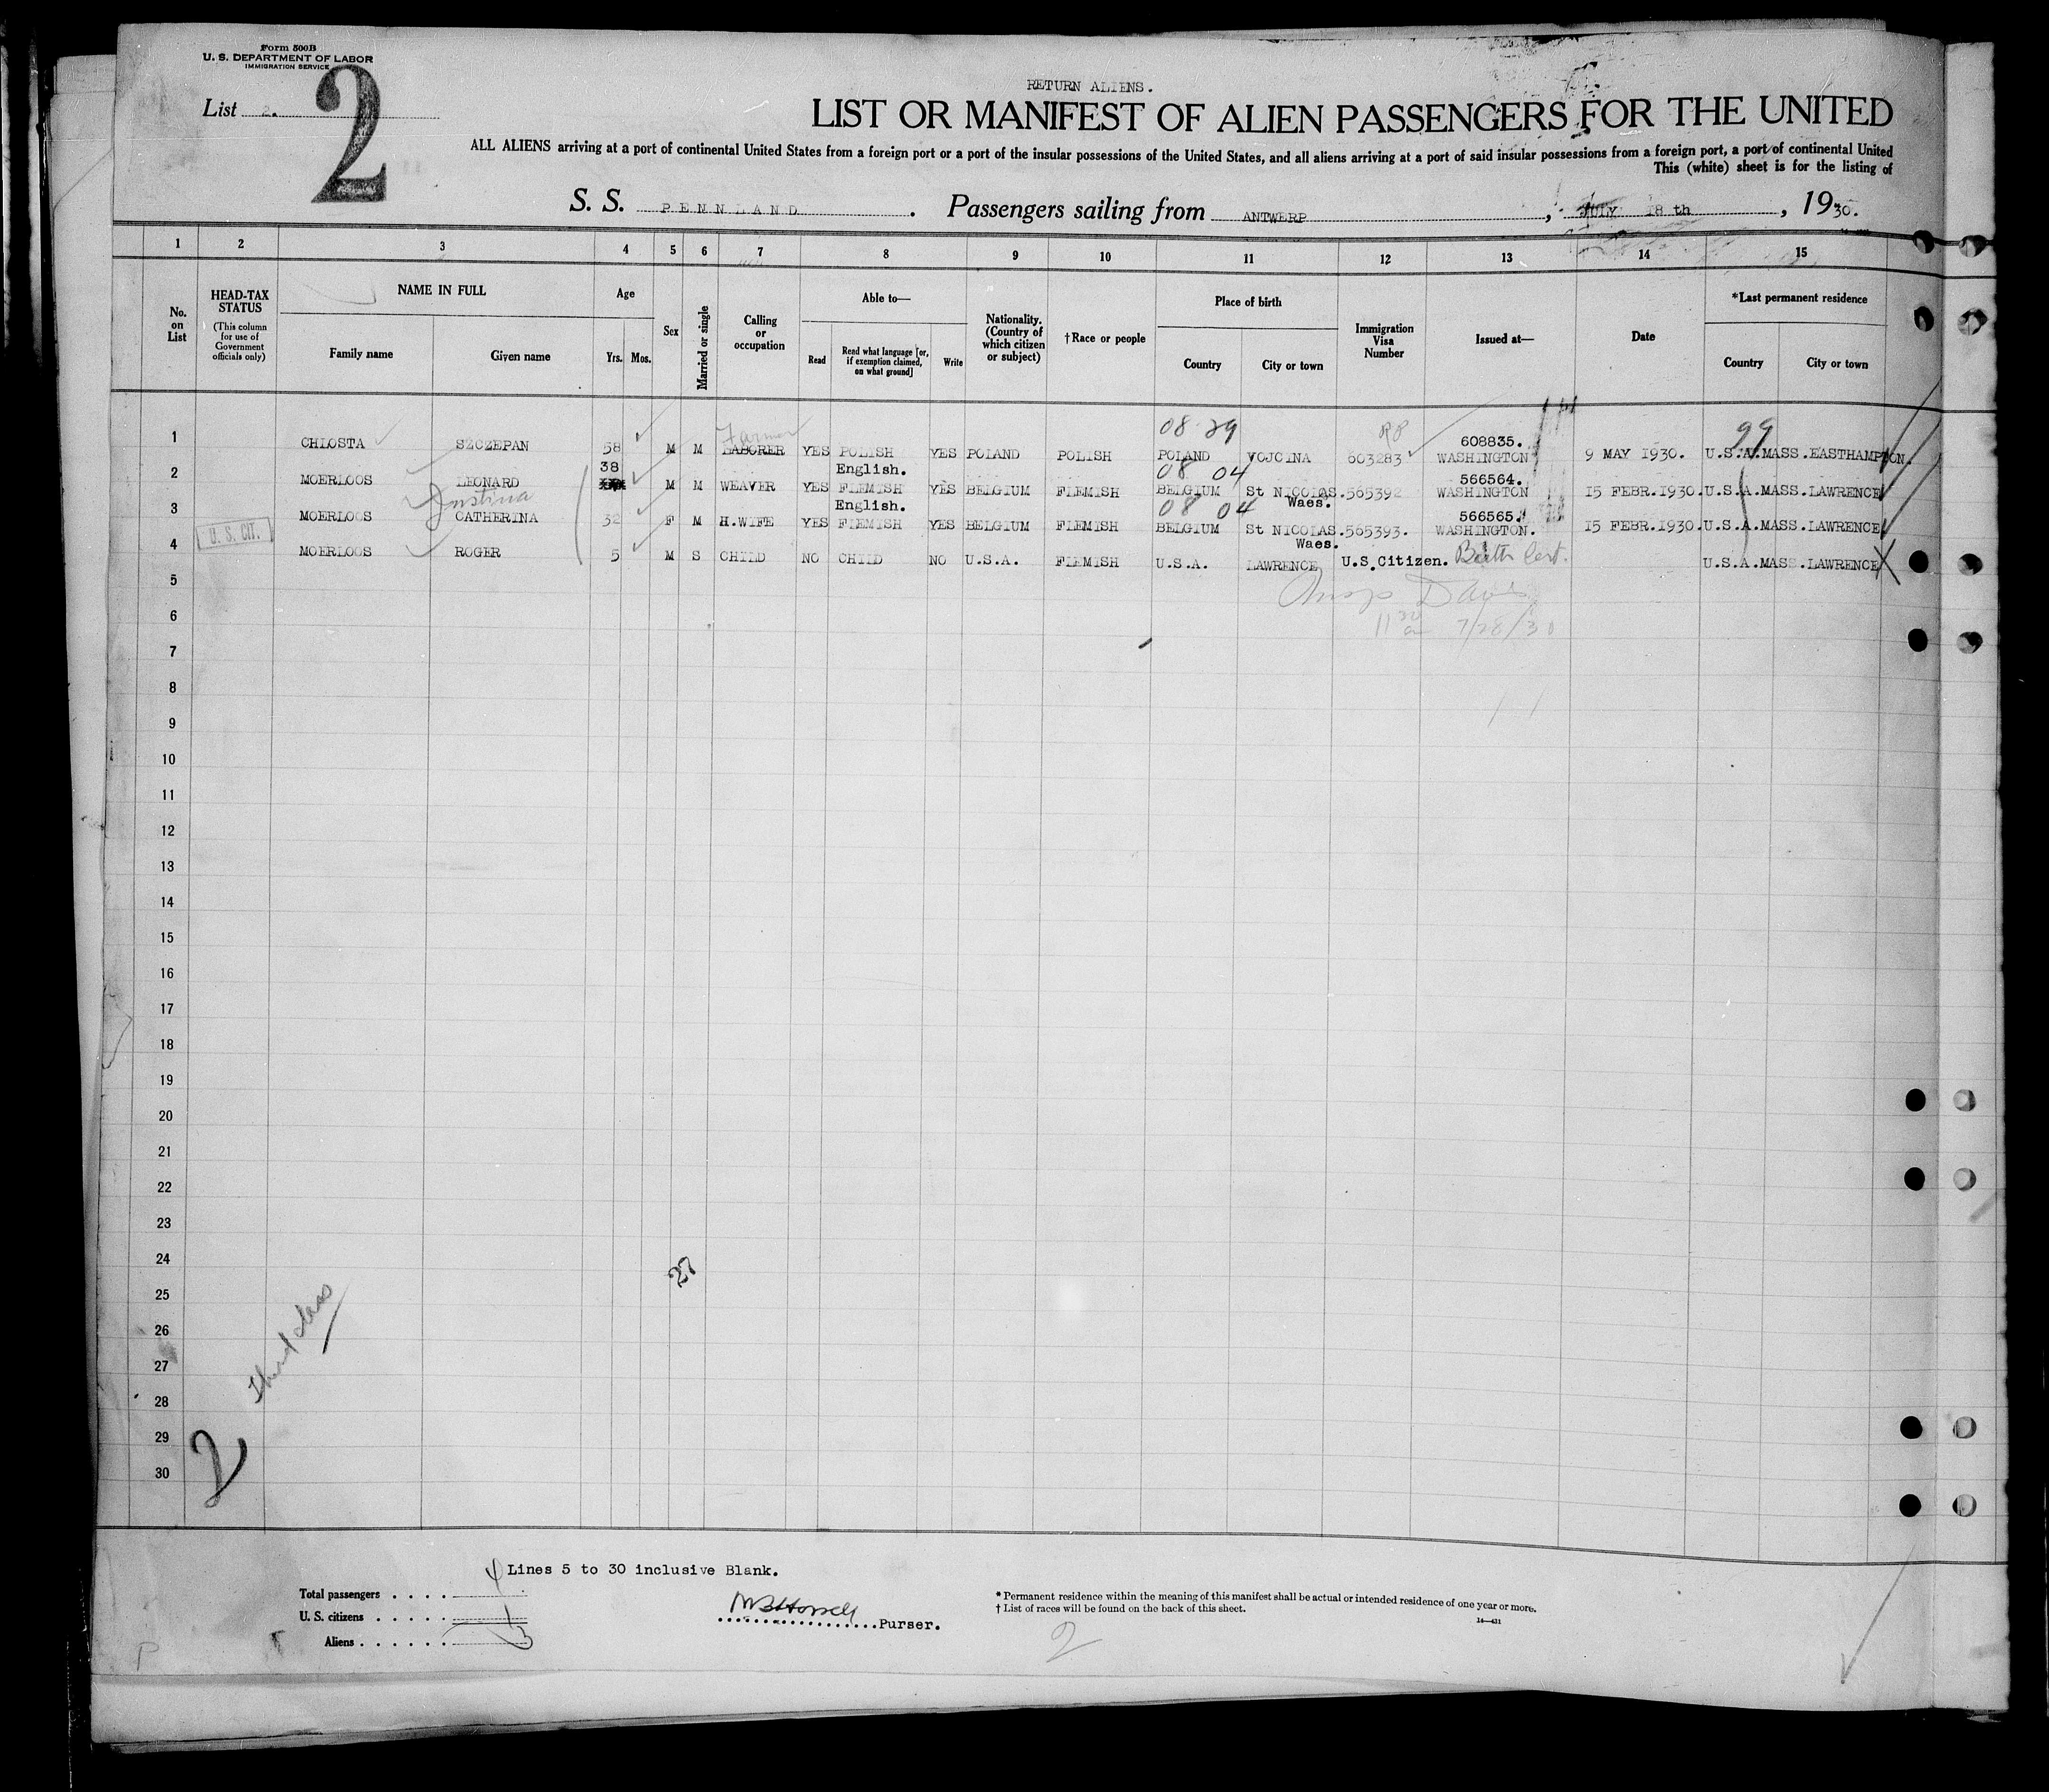 Form 500B
U. S. DEPARTMENT OF LABOR
IMMIGRATION SERVICE
List 2.
2
RETURN ALIENS.
LIST OR MANIFEST OF ALIEN PASSENGERS FOR THE UNITED
ALL ALIENS arriving at a port of continental United States from a foreign port or a port of the insular possessions of the United States, and all aliens arriving at a port of said insular possessions from a foreign port, a port of continental United
This (white) sheet is for the listing of
S. S. PENNLAND . Passengers sailing from ANTWERP , JULY 18 th , 1930.
1 2 3 4 5 6 7 8 9 10 11 12 13 14 15
No. on List
HEAD-TAX STATUS
(This column for use of Government officials only)
NAME IN FULL
Family name Given name
Age
Yrs. Mos.
Sex
Married or single
Calling or occupation
Able to—
Read Read what language [or, if exemption claimed, on what ground] Write
Nationality. (Country of which citizen or subject)
†Race or people
Place of birth
Country City or town
Immigration Visa Number
Issued at—
Date
*Last permanent residence
Country City or town
Farmer 08 29 RP 608835. 99
1 CHLOSTA SZCZEPAN 58 M M LABORER YES POLISH YES POLAND POLISH POLAND VOJCINA 603283 WASHINGTON 9 MAY 1930. U.S.A. MASS. EASTHAMPTON.
38 English. 08 04 566564.
2 MOERLOOS LEONARD M M WEAVER YES FLEMISH YES BELGIUM FLEMISH BELGIUM St NICOLAS. 565392 WASHINGTON 15 FEBR.1930. U.S.A. MASS. LAWRENCE
Justina English. 08 04 Waes. 566565.
3 MOERLOOS CATHERINA 32 F M H.WIFE YES FLEMISH YES BELGIUM FLEMISH BELGIUM St NICOLAS. 565393. WASHINGTON. 15 FEBR.1930. U.S.A. MASS. LAWRENCE
U. S. CIT. Waes.
4 MOERLOOS ROGER 5 M S CHILD NO CHILD NO U.S.A. FLEMISH U.S.A. LAWRENCE U.S.Citizen. Birth Cert. U.S.A. MASS. LAWRENCE
5
Davis
6
7/28/30
7
8
9
10
11
12
13
14
15
16
17
18
19
20
21
22
23
24
27
25
26
27
28
29
30
Third class
2
Lines 5 to 30 inclusive Blank.
Total passengers . . . . 4
U. S. citizens . . . . . 1
Aliens . . . . . . 3
Purser.
* Permanent residence within the meaning of this manifest shall be actual or intended residence of one year or more.
† List of races will be found on the back of this sheet.
14—431
2
P